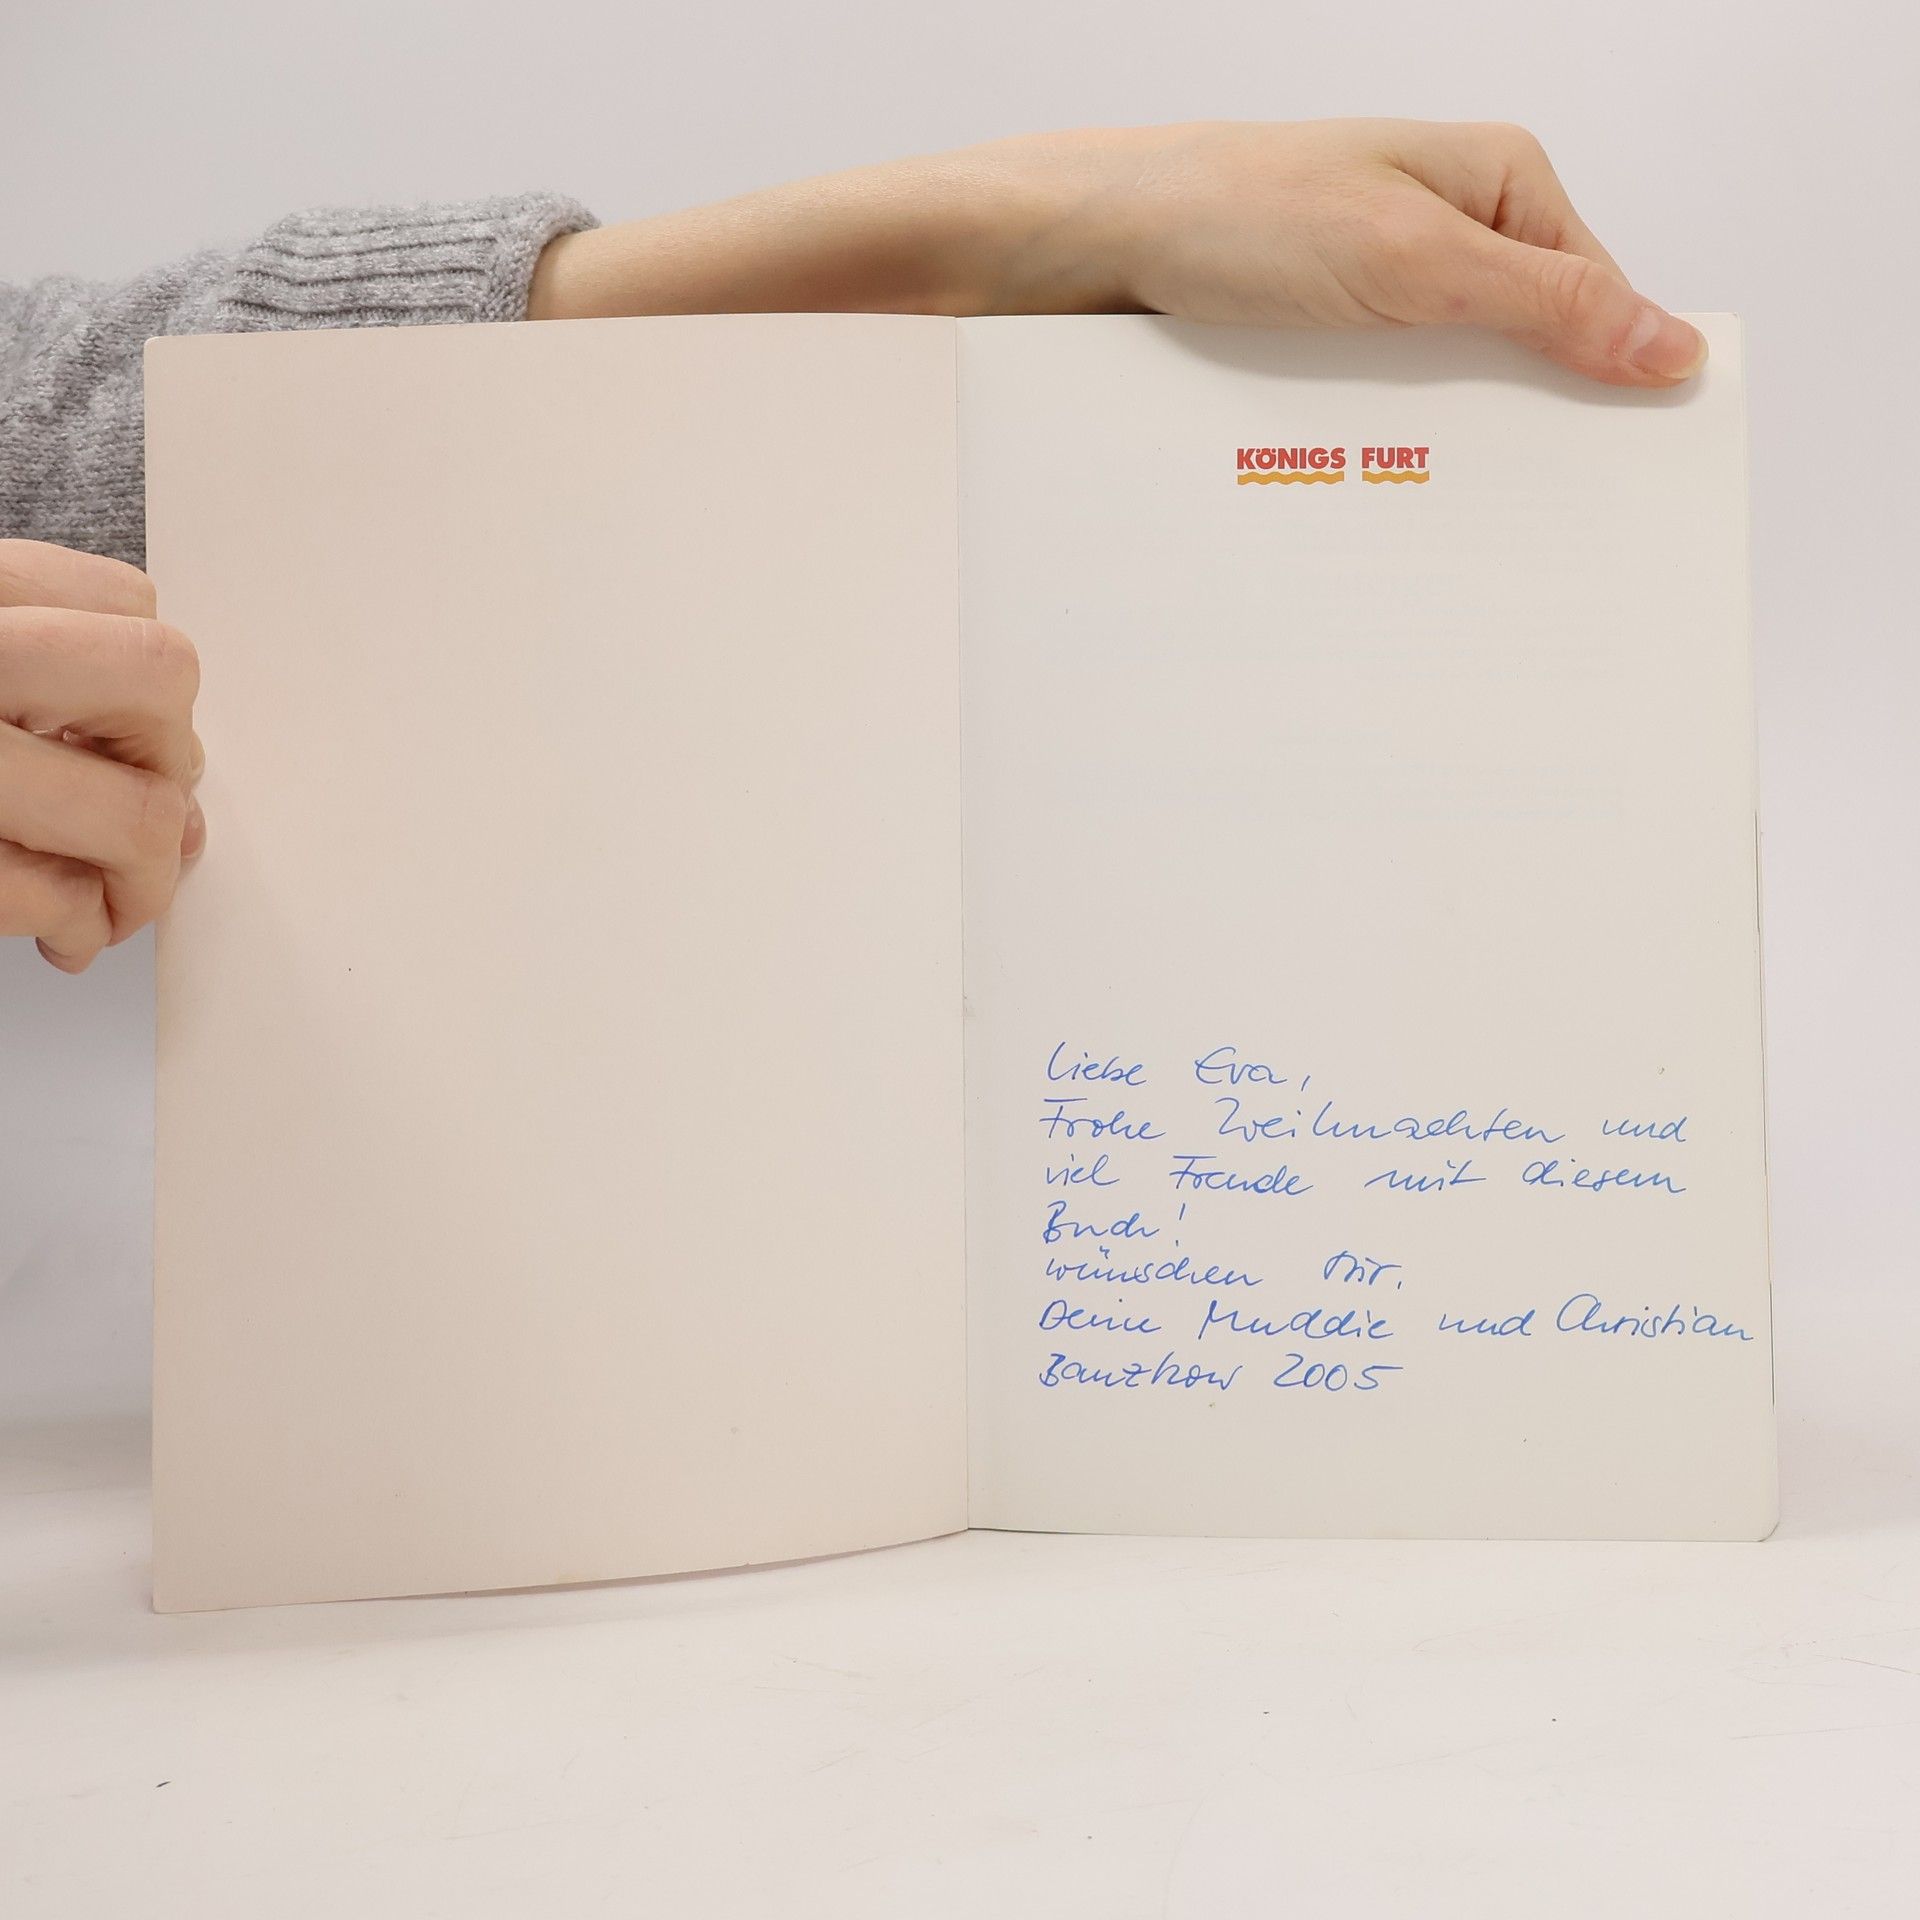 KÖNIGS FURT
Liebe Eva,
Frohe Weihnachten und
viel Freude mit diesem
Buch!
wünschen Dir,
Deine Muddie und Christian
Banzkow 2005